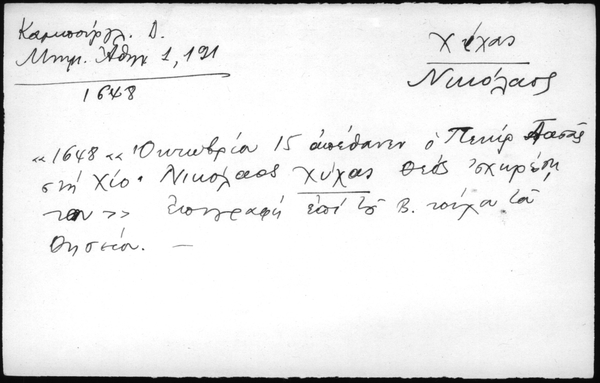 Καμπούρογλ. Δ.
Μνημ. Ἀθην 1, 191
1648
Χύχας
Νικόλαος
«1648 « Ὀκτωβρίου 15 ἀπέθανεν ὁ Πεκίρ Πασᾶς
στή Χίο. Νικόλαος Χύχας Θεός σχωρέσῃ
τον » Ἐπιγραφή ἐπί τοῦ Β. τοίχου τοῦ
Θησείου. —